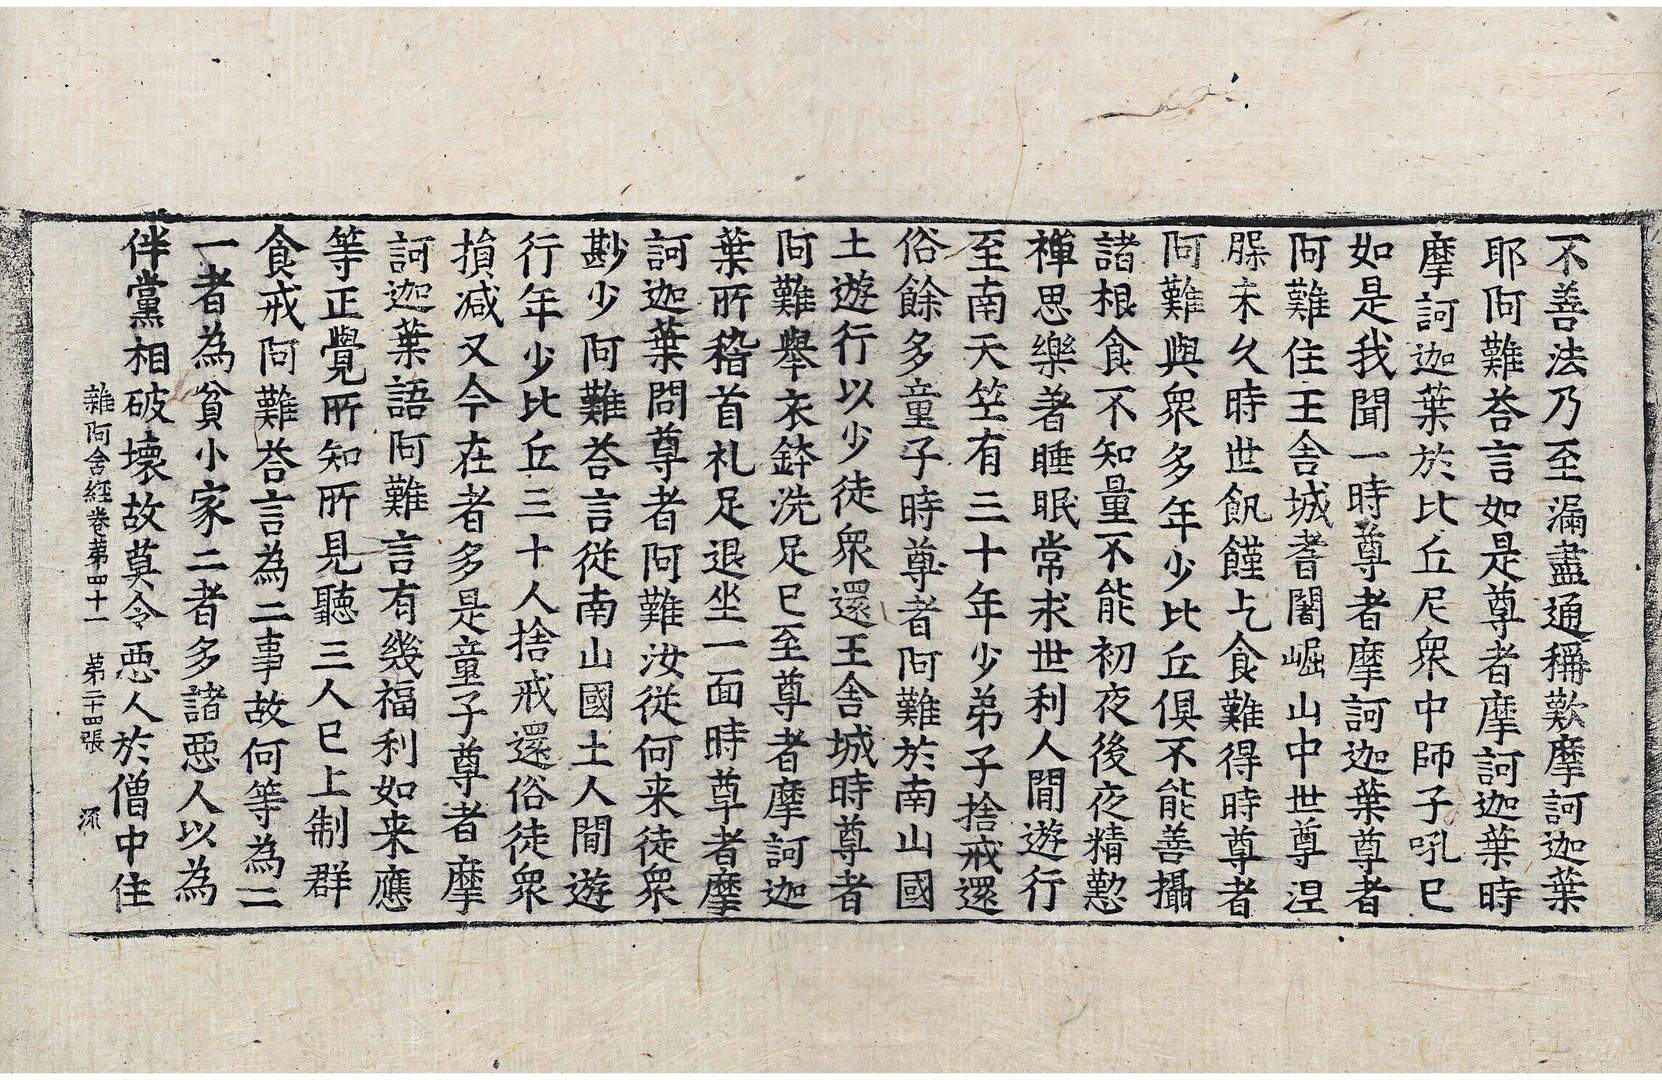 不善法乃至漏盡通稱歎摩訶迦葉
耶阿難荅言如是尊者摩訶迦葉時
摩訶迦葉於比丘尼衆中師子吼已
如是我聞一時尊者摩訶迦葉尊者
阿難住王舍城耆闍崛山中世尊涅
槃未久時世飢饉乞食難得時尊者
阿難與衆多年少比丘俱不能善攝
諸根食不知量不能初夜後夜精懃
禪思樂著睡眠常求世利人間遊行
至南天竺有三十年少弟子捨戒還
俗餘多童子時尊者阿難於南山國
土遊行以少徒衆還王舍城時尊者
阿難舉衣鉢洗足已至尊者摩訶迦
葉所稽首礼足退坐一面時尊者摩
訶迦葉問尊者阿難汝從何来徒衆
尠少阿難荅言從南山國土人間遊
行年少比丘三十人捨戒還俗徒衆
損减又今在者多是童子尊者摩
訶迦葉語阿難言有幾福利如来應
等正覺所知所見聽三人已上制群
食戒阿難荅言為二事故何等為二
一者為貧小家二者多諸惡人以為
伴黨相破壞故莫令惡人於僧中住
雜阿含經卷第四十一 第二十四張 㴱